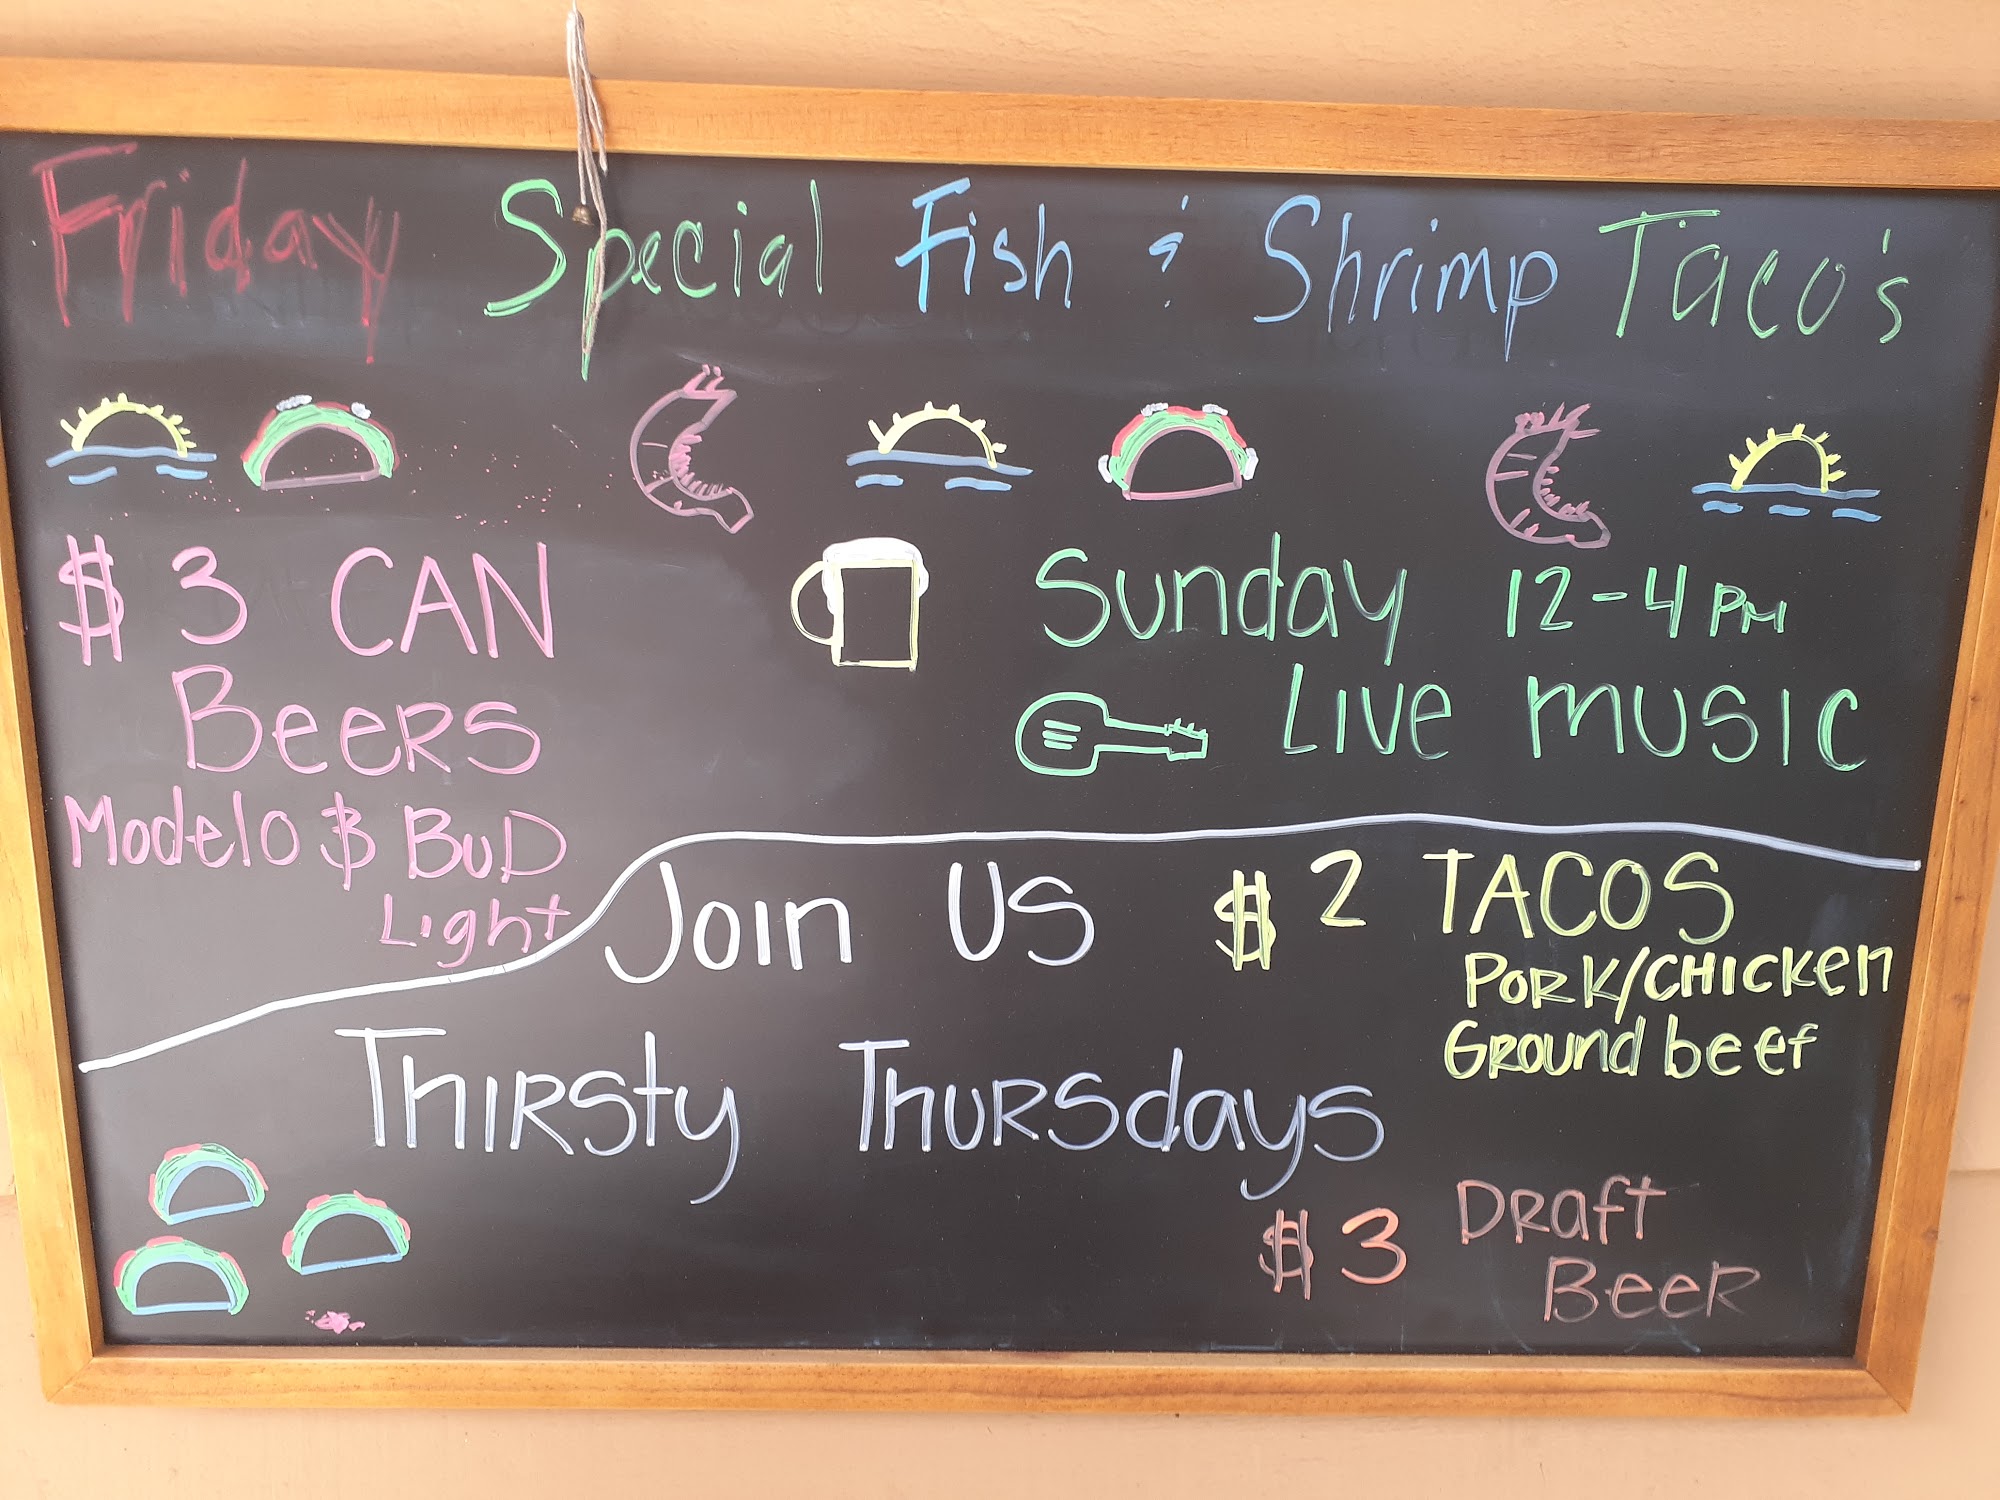 Friday Special Fish & Shrimp Taco's
$3 CAN
BEERS
Modelo & BUD
Light
Sunday 12-4PM
LIVE MUSIC
Join US
Thirsty Thursdays
$2 TACOS
PORK/CHICKen
GROUnd beef
$3 DRaft
BeeR